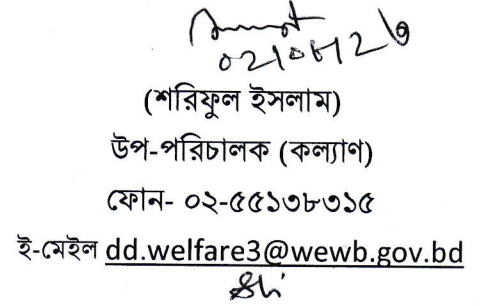 (শরিফুল ইসলাম)
উপ-পরিচালক (কল্যাণ)
ফোন- ০২-৫৫১৩৮৩১৫
ই-মেইল dd.welfare3@wewb.gov.bd